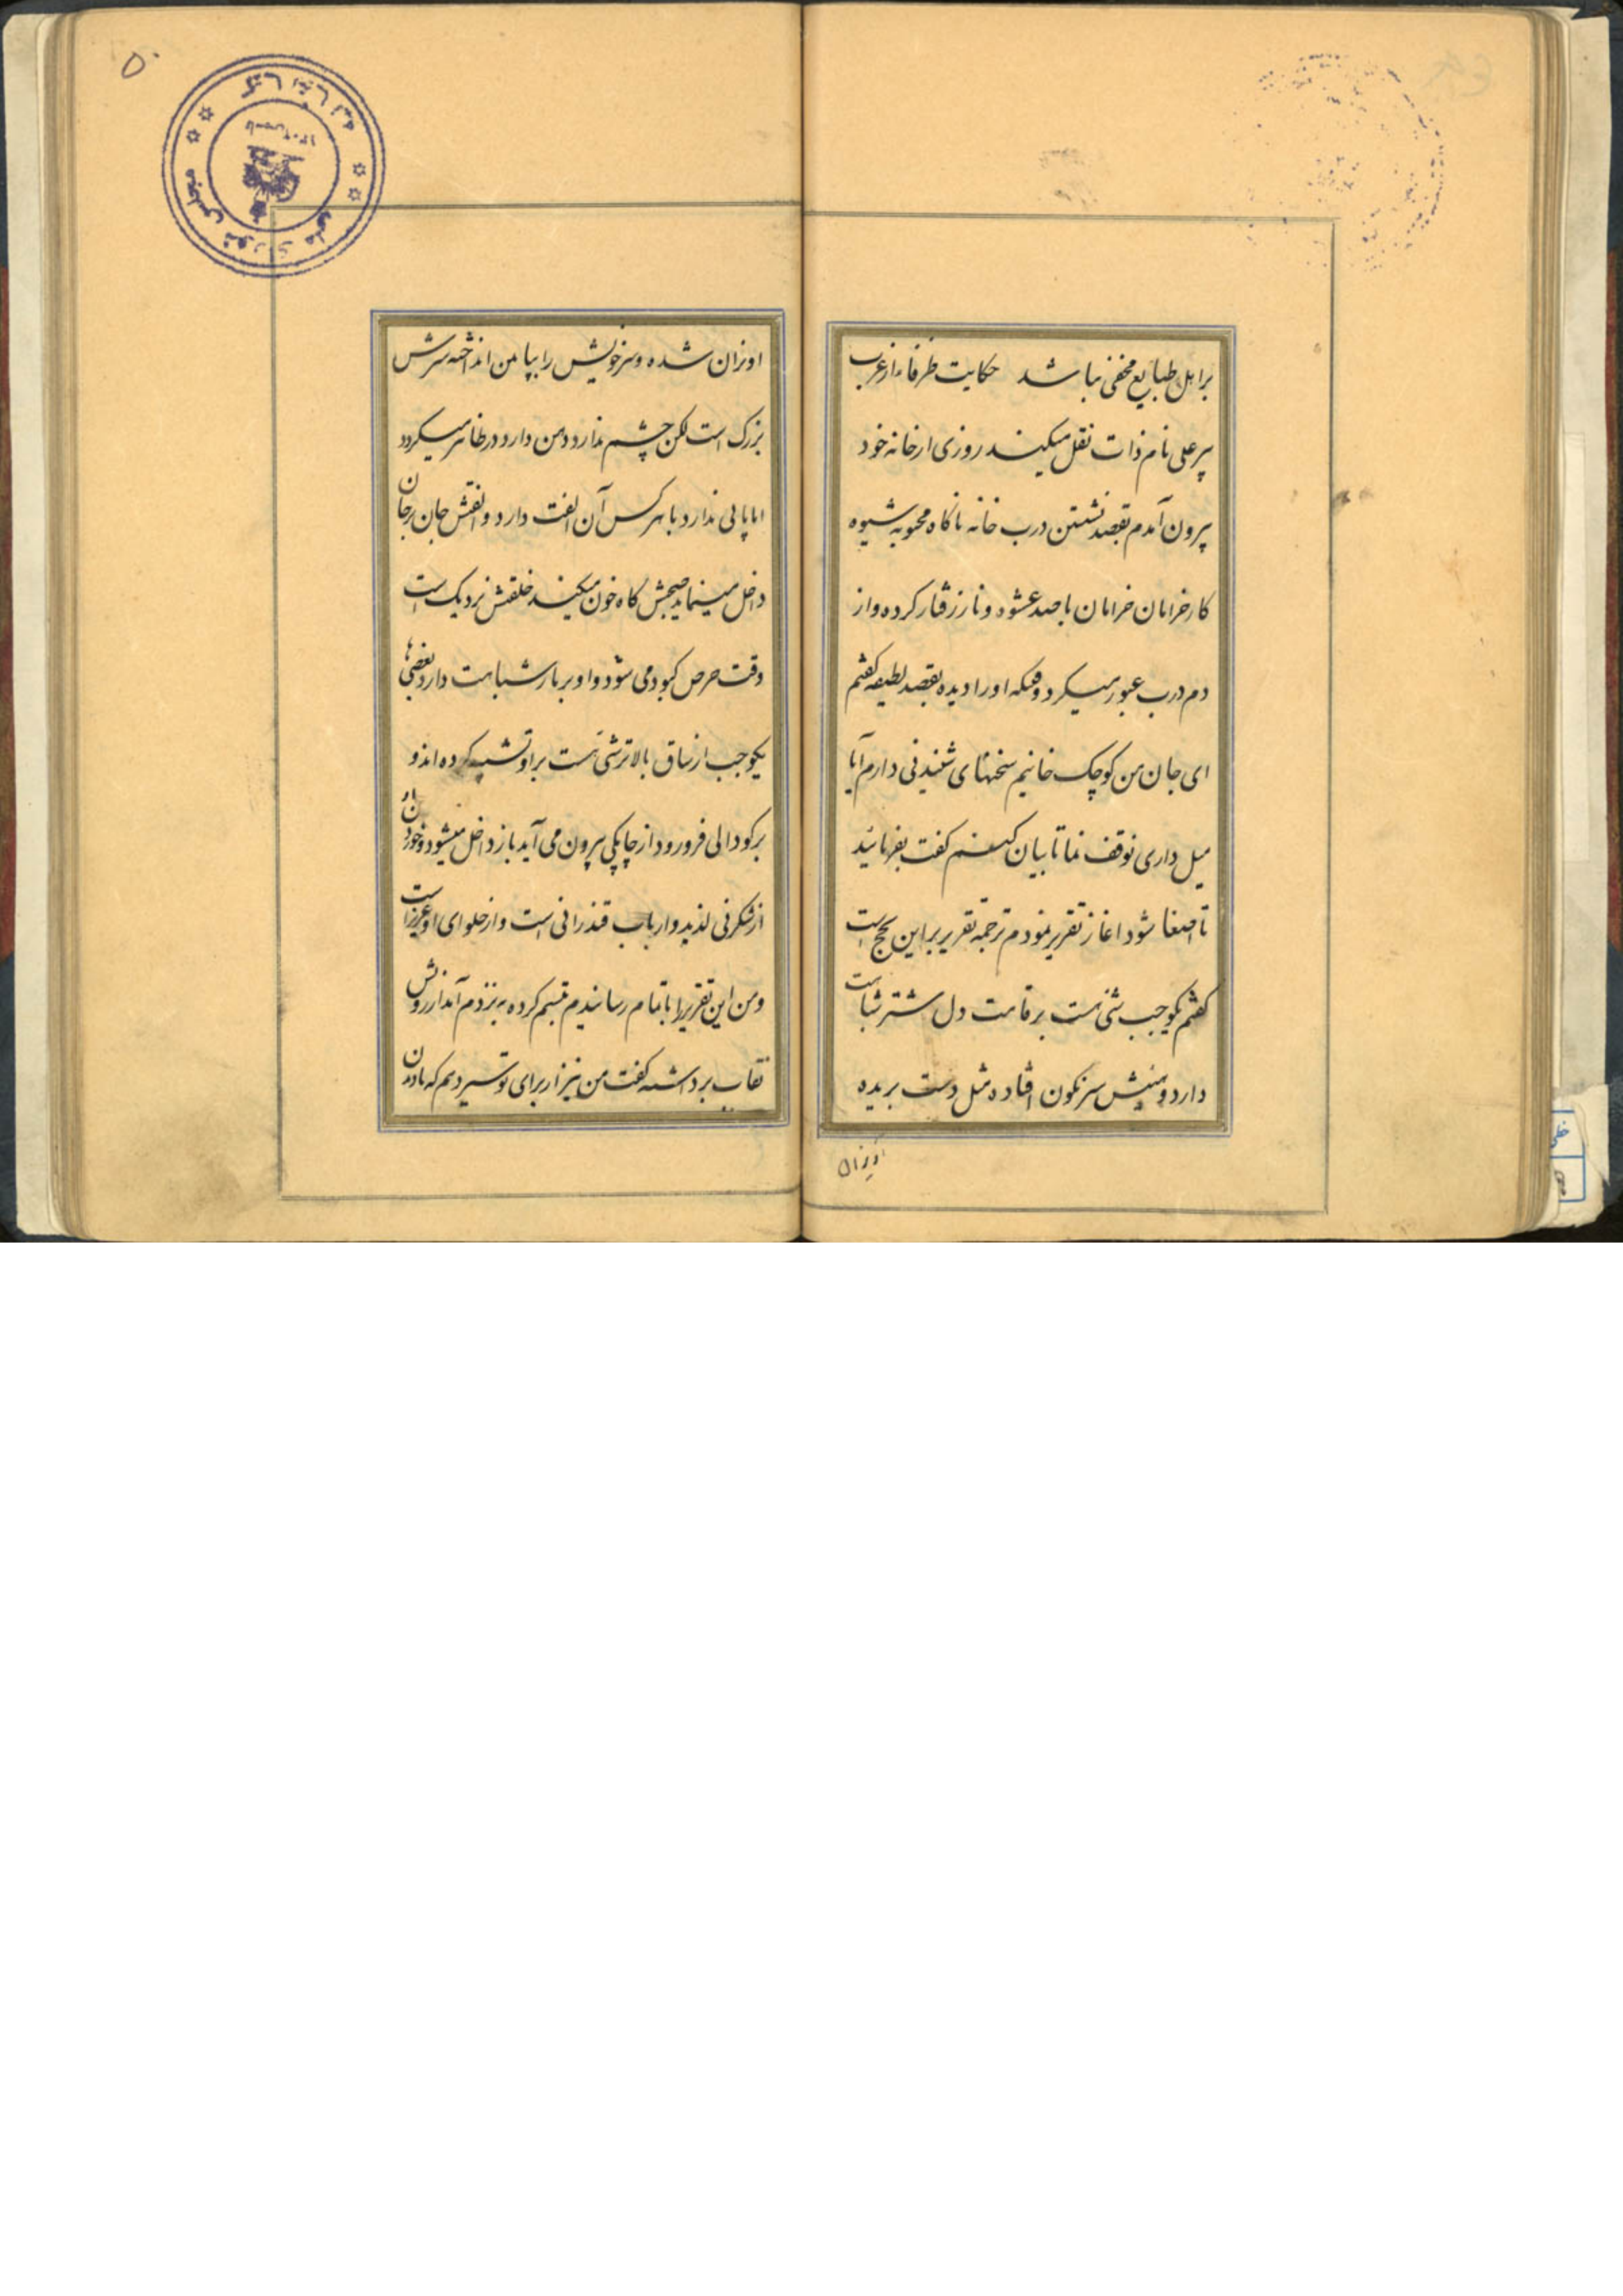 بر اهل طبایع مخفی نباشد حکایت ظرفاء از عرب
پیر علی نام ذات نقل میکند روزی از خانه خود
بیرون آمدم بقصد نشستن درب خانه ناکاه محبوبه شیوه
کار خرامان خرامان با صد عشوه و ناز رفتار کرده و از
دم درب عبور میکرد وقتیکه او را دیده بقصد لطیفه کفتم
ای جان من کوچک خانیم سخنهای شنیدنی دارم آیا
میل داری توقف نما تا بیان کنم کفت بفرمائید
تا اصغا شود اغاز تقریر نمودم ترجمه تقریر براین نهج است
کفتم یکوجب شئی هست بر قامت دل شتر شباهت
دارد و سرش سرنکون افتاده مثل دست بریده
اویزان
۵۰
اویزان شده و سر خویش را بپا من انداخته سرش
بزرک است لکن چشم ندارد دهن دارد در ظاهر میکردد
اما پائی ندارد با هر کس آن الفت دارد و الفتش جان برجان
داخل مینماید کاه خون میکند خلقتش نزدیک است
وقت حرص کبود می شود و او بر مار شباهت دارد بعضی‌ها
یکوجب از ساق بالاتر شئی هست بر او تشبیه کرده اند و
بر کودالی فرو رود از چاپکی بیرون می آید باز داخل میشود و خوردن او
از شکر نی لذید و از باب قند رانی است و از حلوای او عزیز است
و من این تقریر را با تمام رسانیدم تبسم کرده به نزدم آمد از رویش
نقاب برداشته کفت من نیز از برای تو سیر دهم که مادن
مجلس شورای ملی